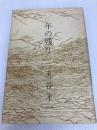 年の残り
丸谷才一